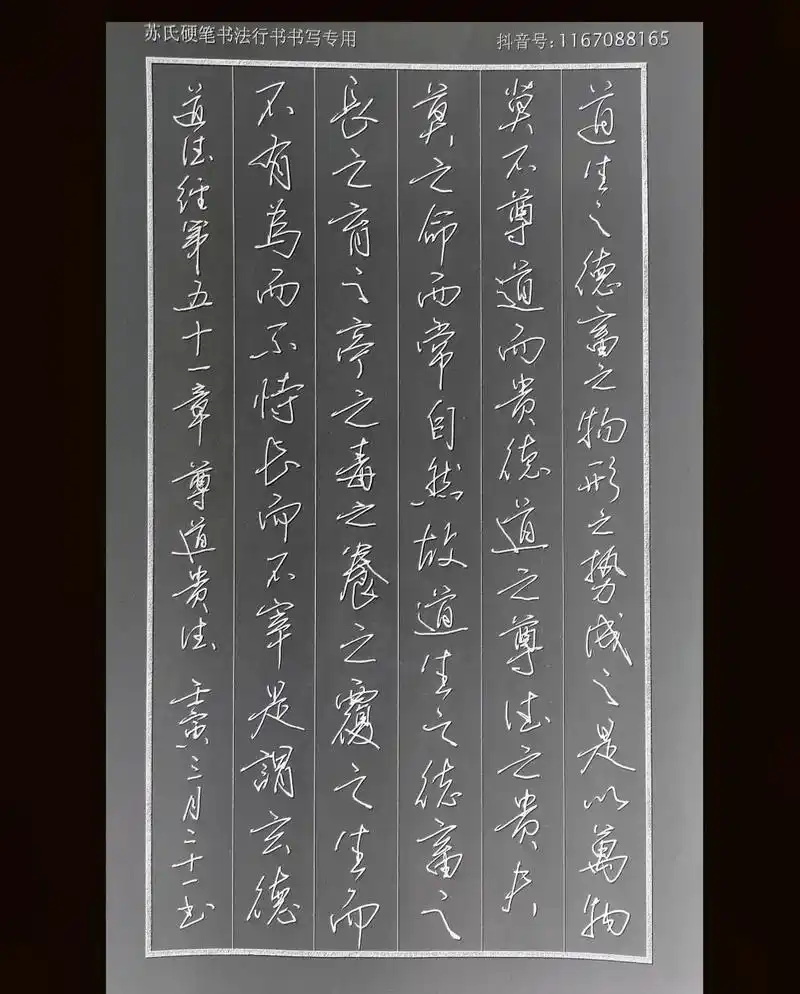 苏氏硬笔书法行书书写专用
抖音号:1167088165
道生之德畜之物形之势成之是以萬物
莫不尊道而贵德道之尊德之贵夫
莫之命而常自然故道生之德畜之
長之育之亭之毒之養之覆之生而
不有為而不恃长而不宰是謂玄德
道德經第五十一章 尊道贵德 壬寅三月二十一书